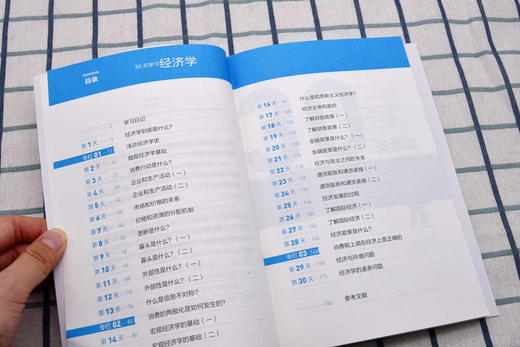 Contents
目录
30天学习 经济学
学习日记
第1天 经济学到底是什么?
专栏 01 浅谈经济学史
第2天 微观经济学基础
第3天 消费行动是什么?
第4天 企业和生产活动(一)
第5天 企业和生产活动(二)
第6天 市场和价格的关系
第7天 价格和资源的分配机制
第8天 垄断是什么?
第9天 寡头是什么?(一)
第10天 寡头是什么?(二)
第11天 外部性是什么?(一)
第12天 外部性是什么?(二)
第13天 什么是信息不对称?
专栏 02 82 消费的两极化是如何发生的?
第14天 宏观经济学的基础(一)
宏观经济学的基础(二)
第16天 什么是凯恩斯主义经济学?
第17天 经济主体和政府
第18天 了解财政政策(一)
第19天 了解财政政策(二)
第20天 金融政策是什么?(一)
第21天 金融政策是什么?(二)
第22天 经济与就业之间的关系
第23天 通货膨胀和通货紧缩(一)
第24天 通货膨胀和通货紧缩(二)
第25天 经济发展的过程
第26天 了解国际经济(一)
第27天 了解国际经济(二)
第28天 经济政策是什么?
专栏 03 消费税上调在经济上是正确的
第29天 经济与环境问题
第30天 经济学的诸多问题
参考文献